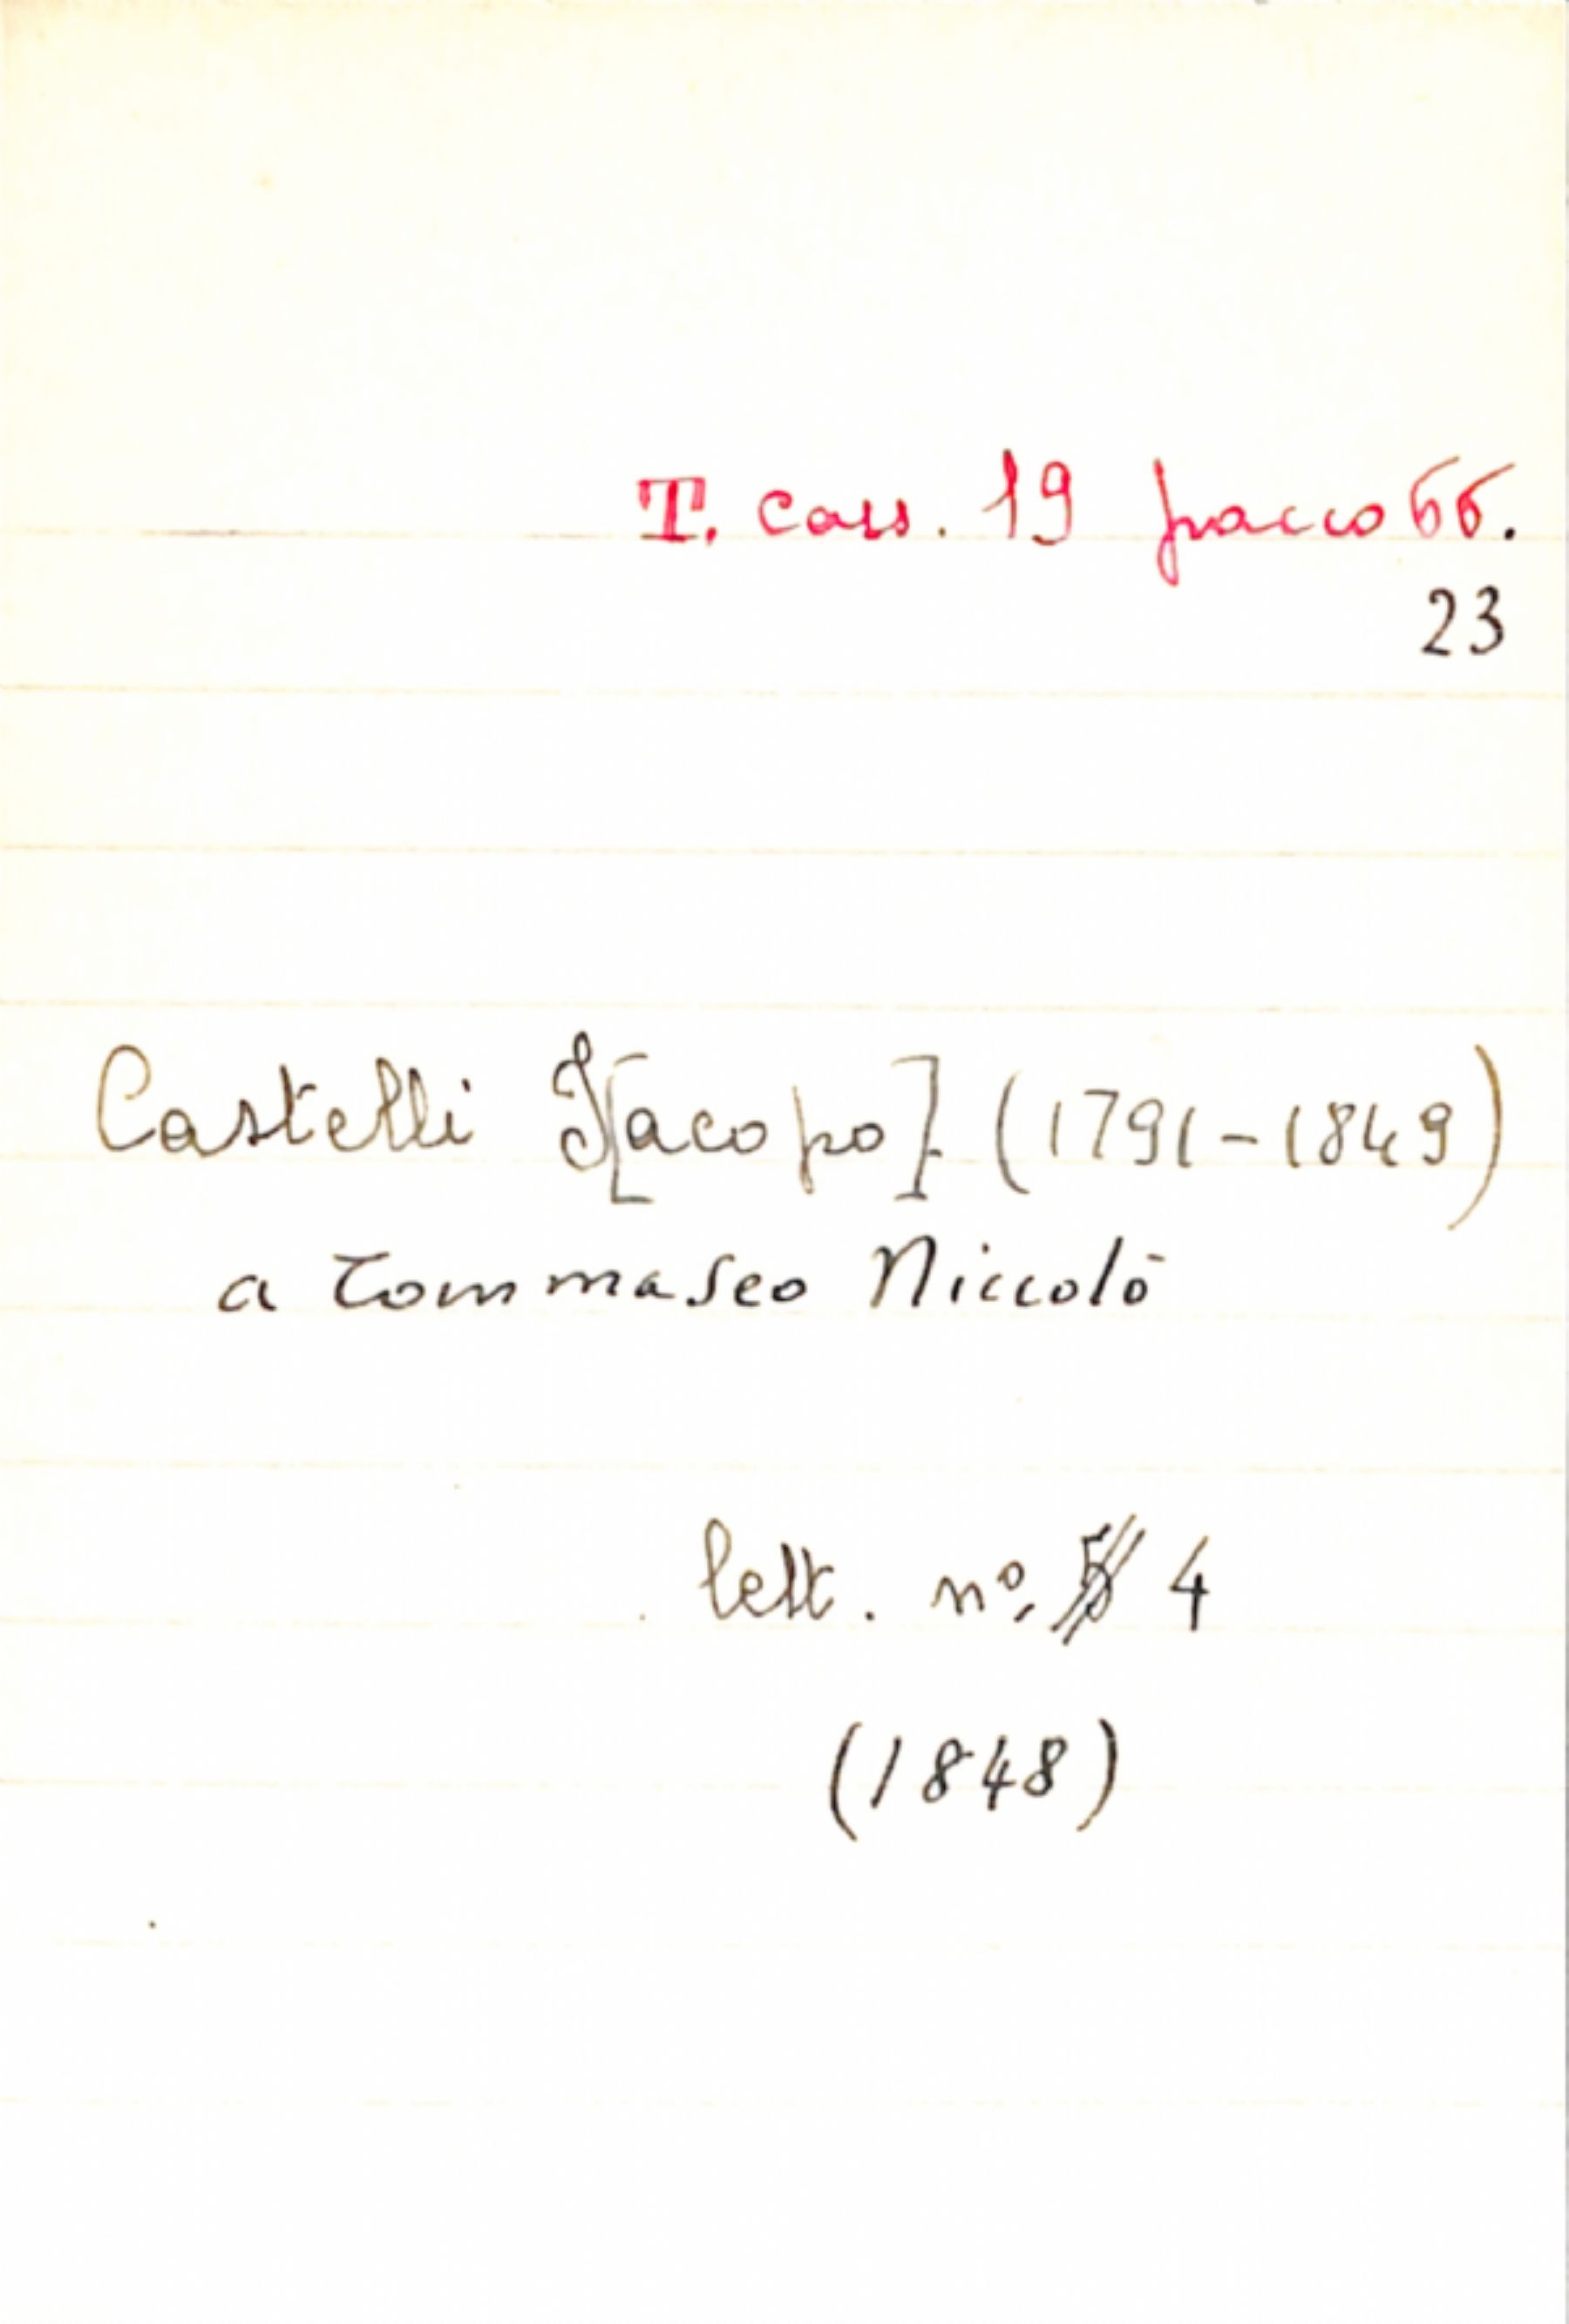 T. cass. 19 pacco 66.
23
Castelli J[acopo]. (1791-1849)
a Tommaseo Niccolò
lett. nº. 4
(1848)